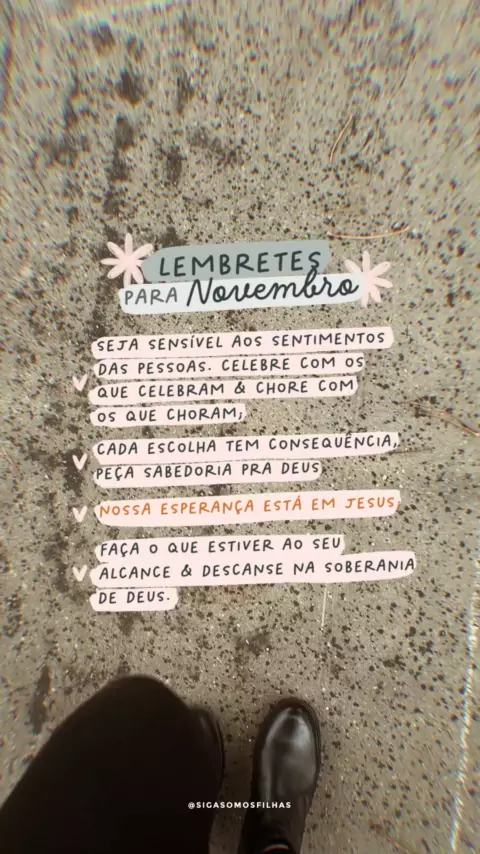 LEMBRETES
PARA Novembro
SEJA SENSÍVEL AOS SENTIMENTOS
DAS PESSOAS. CELEBRE COM OS
QUE CELEBRAM & CHORE COM
OS QUE CHORAM;
CADA ESCOLHA TEM CONSEQUÊNCIA,
PEÇA SABEDORIA PRA DEUS
NOSSA ESPERANÇA ESTÁ EM JESUS;
FAÇA O QUE ESTIVER AO SEU
ALCANCE & DESCANSE NA SOBERANIA
DE DEUS.
@SIGASOMOSFILHAS